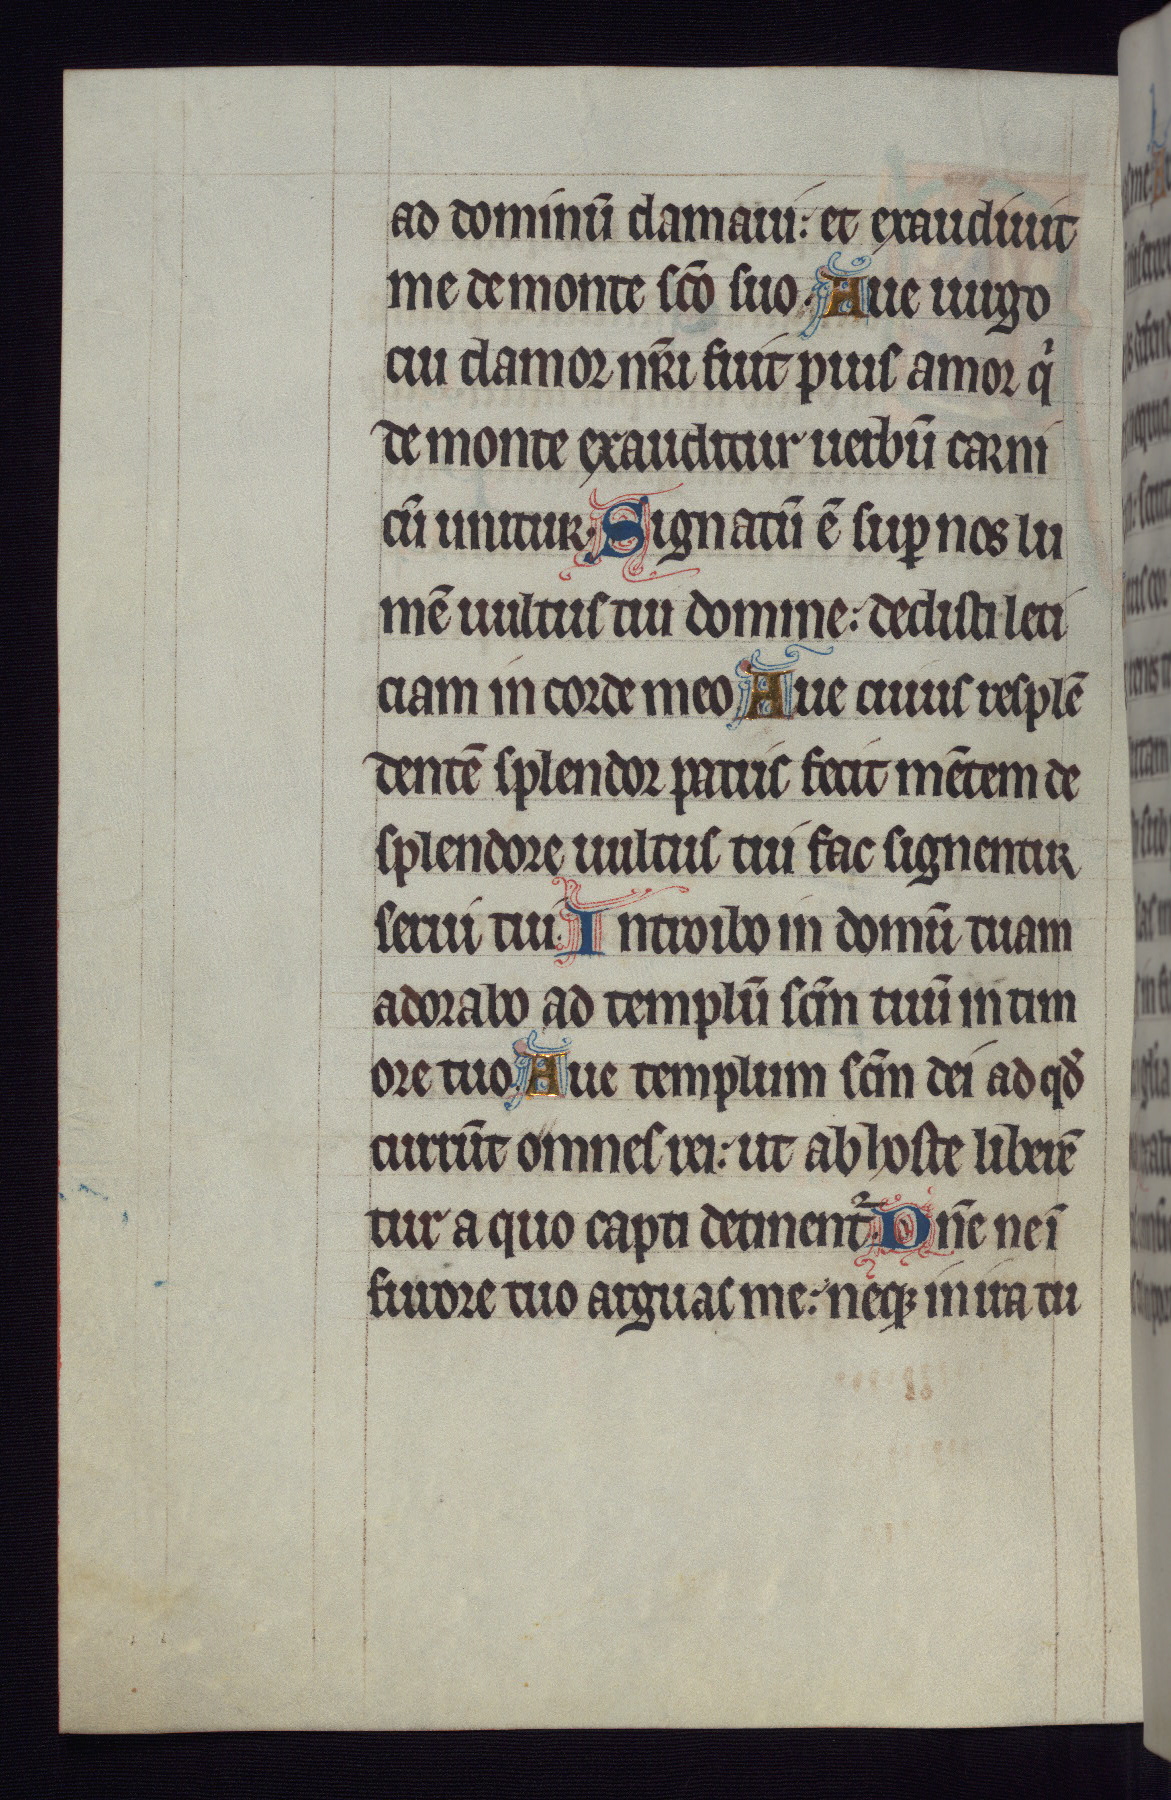 ad dominū clamaui: et exaudiuit
me de monte sc̄o suo. Aue uirgo
cui clamor nr̄i fuit prius amor qͥ
de monte exauditur uerbū carni
cū unitur. Signatū ē sup nos lu
mē uultus tui domine: dedisti leti
ciam in corde meo Aue cuius resplē
dentē splendor patris fecit mētem de
splendore uultus tui fac signentur
serui tui. Introibo in domū tuam
adorabo ad templū sc̄m tuū in tim
ore tuo. Aue templum sc̄m dei ad qđ
currūt omnes rei: ut ab hoste liberē
tur a quo capti detinent᷑. Dn̄e ne ī
furore tuo arguas me: neqꝫ in ira tu